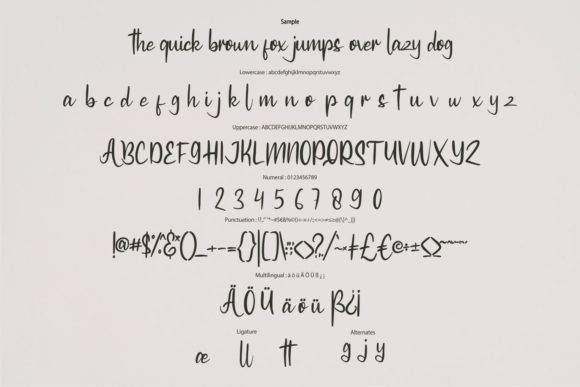 Sample
the quick brown fox jumps over lazy dog
Lowercase : abcdefghjklmnopqrstuvwxyz
a b c d e f g h i j k l m n o p q r s t u v w x y z
Uppercase : ABCDEFGHIJKLMNOPQRSTUVWXYZ
ABCDEFGHIJKLMNOPQRSTUVWXYZ
Numeral : 0123456789
1 2 3 4 5 6 7 8 9 0
Punctuation :
!@#$%^&*()_+-={}|[]\:;<>?,/~
Multilingual : ä ö ü Ä Ö Ü ß ¿ ¡
Ä Ö Ü ä ö ü ß ¿ ¡
Ligature Alternates
æ ll tt g j y